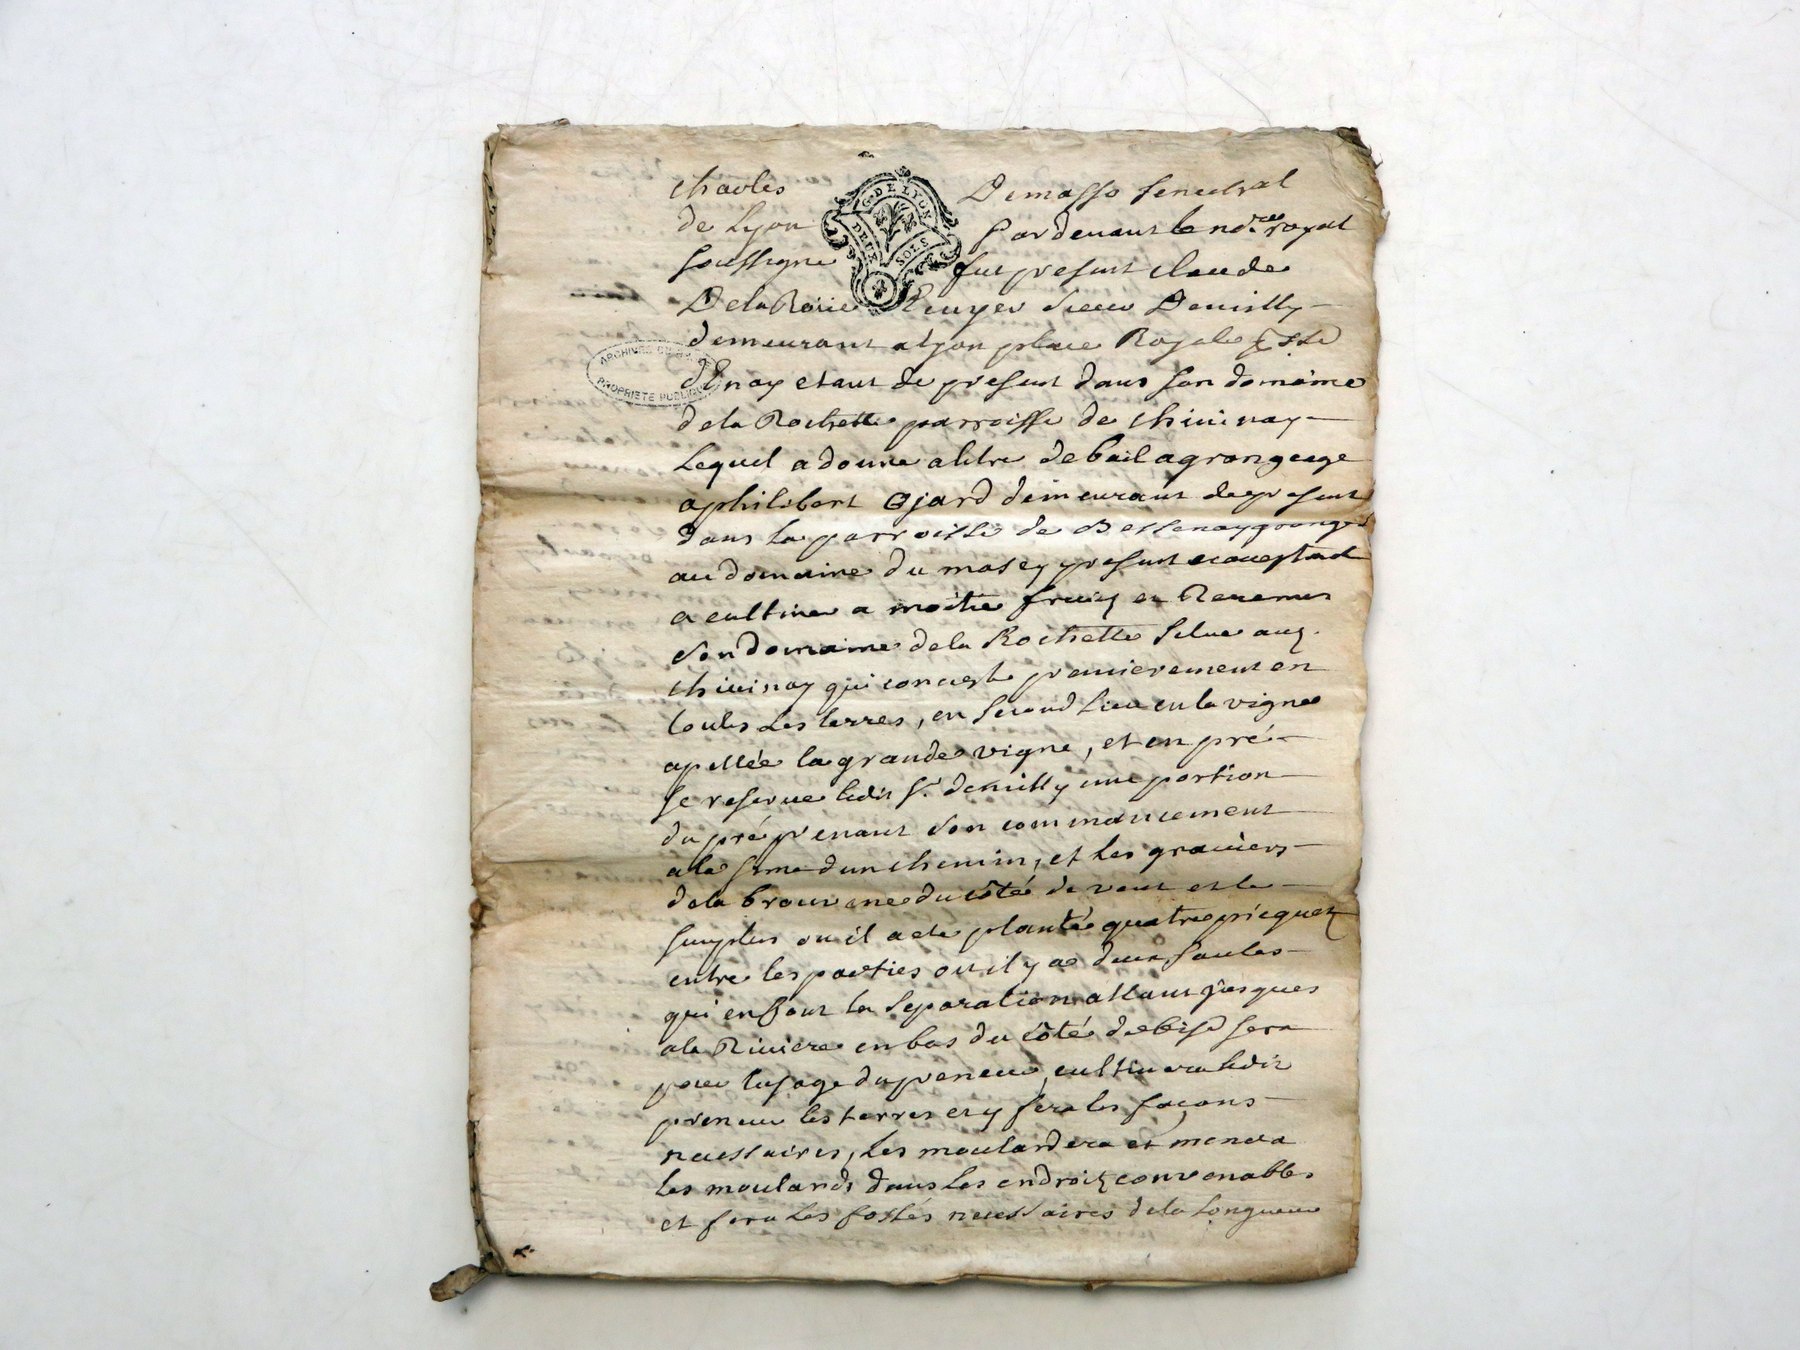 Charles Demasso senechal
de Lyon Pardevant le no.re royal
soussigné fut present Claude
Dela Roüe Ecuyer sieur Demilly
demeurant a Lyon place Royale psse
d'Enay etant de present dans son domaine
de la Rochette parroisse de chivinay
Lequel a donné a titre de bail a grangeage
a philibert Ojard demeurant de present
dans la parroisse de Bessenay granger
au domaine du masey present et acceptant
a cultiver a moitié fruicts et
son domaine de la Rochette situé aud.
chivinay qui concerte premierement en
toutes les terres, en second lieu en la vigne
apellée la grande vigne, et en pré
se reserve ledit Sr. demilly une portion
du pré prenant son commancement
a la sime d'un chemin, et les graviers
de la du côté de vent et le
surplus ou il a eté planté quatre picquets
entre les parties ou il y a deux saules
qui en font la separation allant jusques
a la Riviere en bas du côté de bise sera
pour lusage du preneur, cultivera ledit
preneur les terres et y fera les façons
necessaires, les moulardera et menera
les moulards dans les endroits convenables
et fera les fossés necessaires de la longueur
G. DE LYON
DEUX SOLS
ARCHIVES DU
PROPRIETE PUBLIQUE